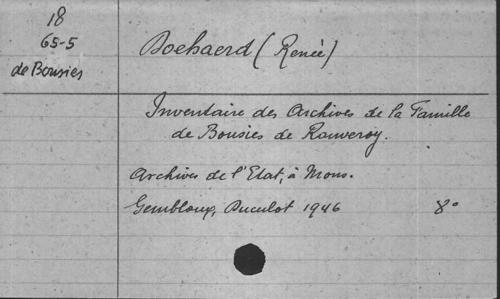 18
65-5
de Bousies
Doehaerd (Renée)
Inventaire des Archives de la Famille
de Bousies de Rouveroy.
Archives de l'Etat, à Mons.
Gembloux, Duculot 1946 8°